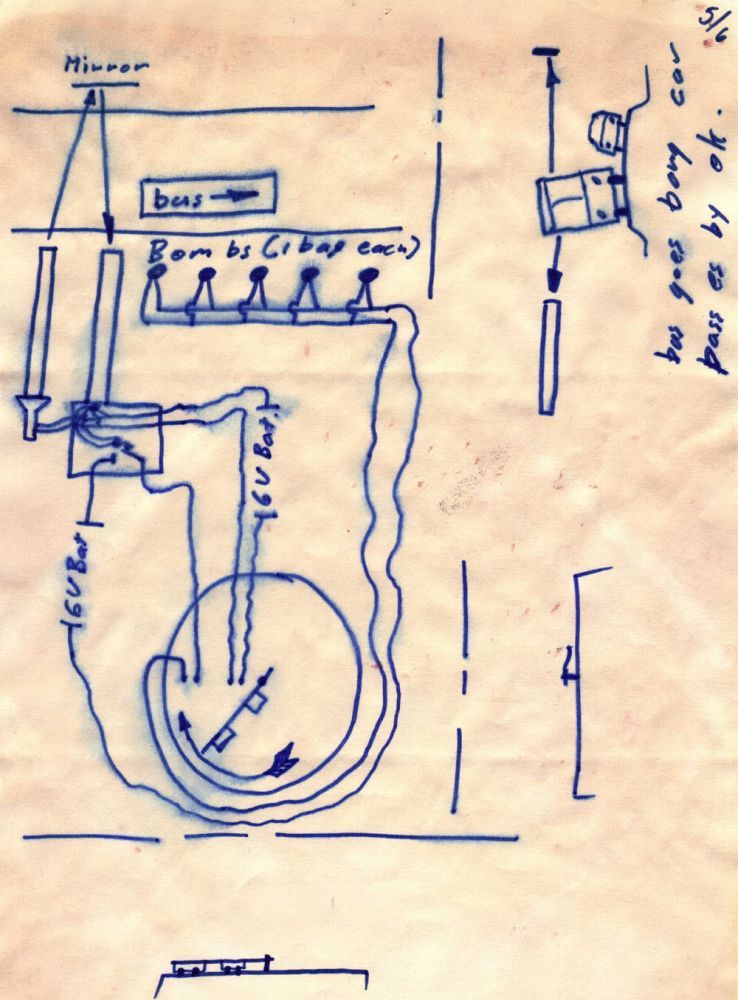 5/6
Mirror
bus
Bombs (1 bag each)
6V Bat
6V Bat
bus goes bomg car
passes by ok.